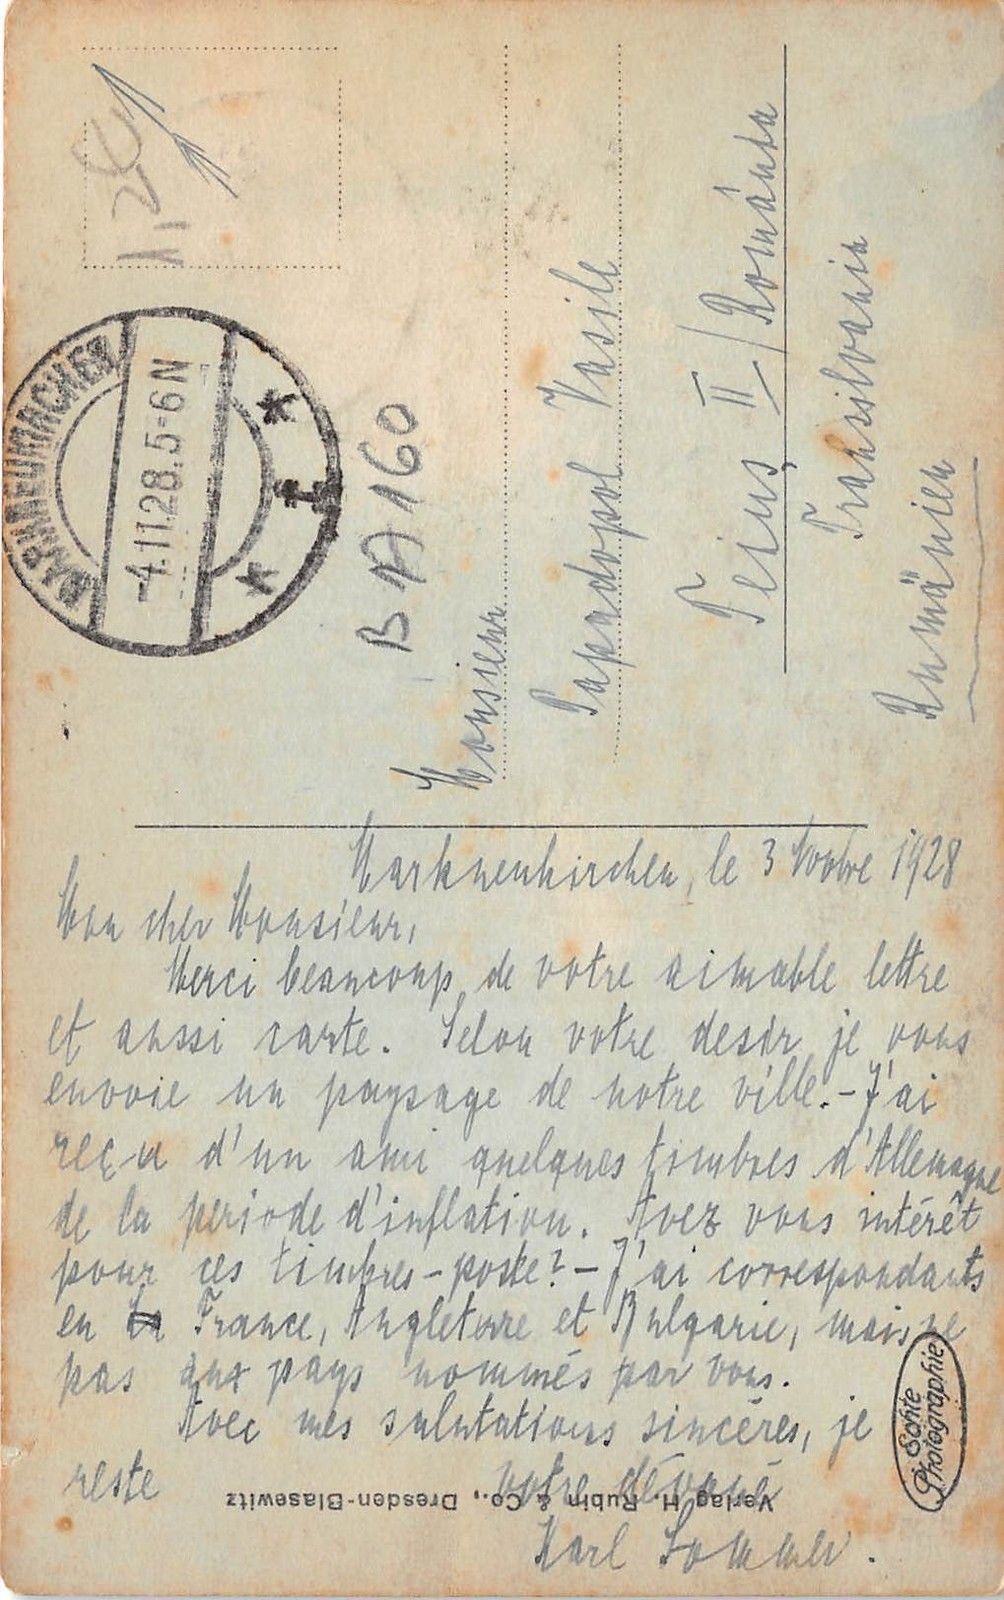 MARKNEUKIRCHEN
-4.11.28.5-6N
BA160
Monsieur
Papadopol Vasile
Teiuș II / România
Transsilvania
Rumänien
Marknenkirchen, le 3 Novbre 1928
Mon cher Monsieur,
Merci beaucoup de votre aimable lettre
et aussi carte. Selon votre desir je vous
envoie un paysage de notre ville. - J'ai
reçu d'un ami quelques timbres d'Allemagne
de la periode d'inflation. Avez vous intérêt
pour ces timbres-poste? - J'ai correspondants
en France, Angleterre et Bulgarie, mais ne
pas aux pays nommés par vous.
Avec mes salutations sincères, je
reste votre dévoué
Karl Sommer.
Verlag H. Rubin & Co., Dresden-Blasewitz
Echte
Photographie